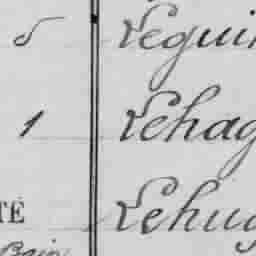 5 Legui
1 Lehag
TÉ Lehug
Bain